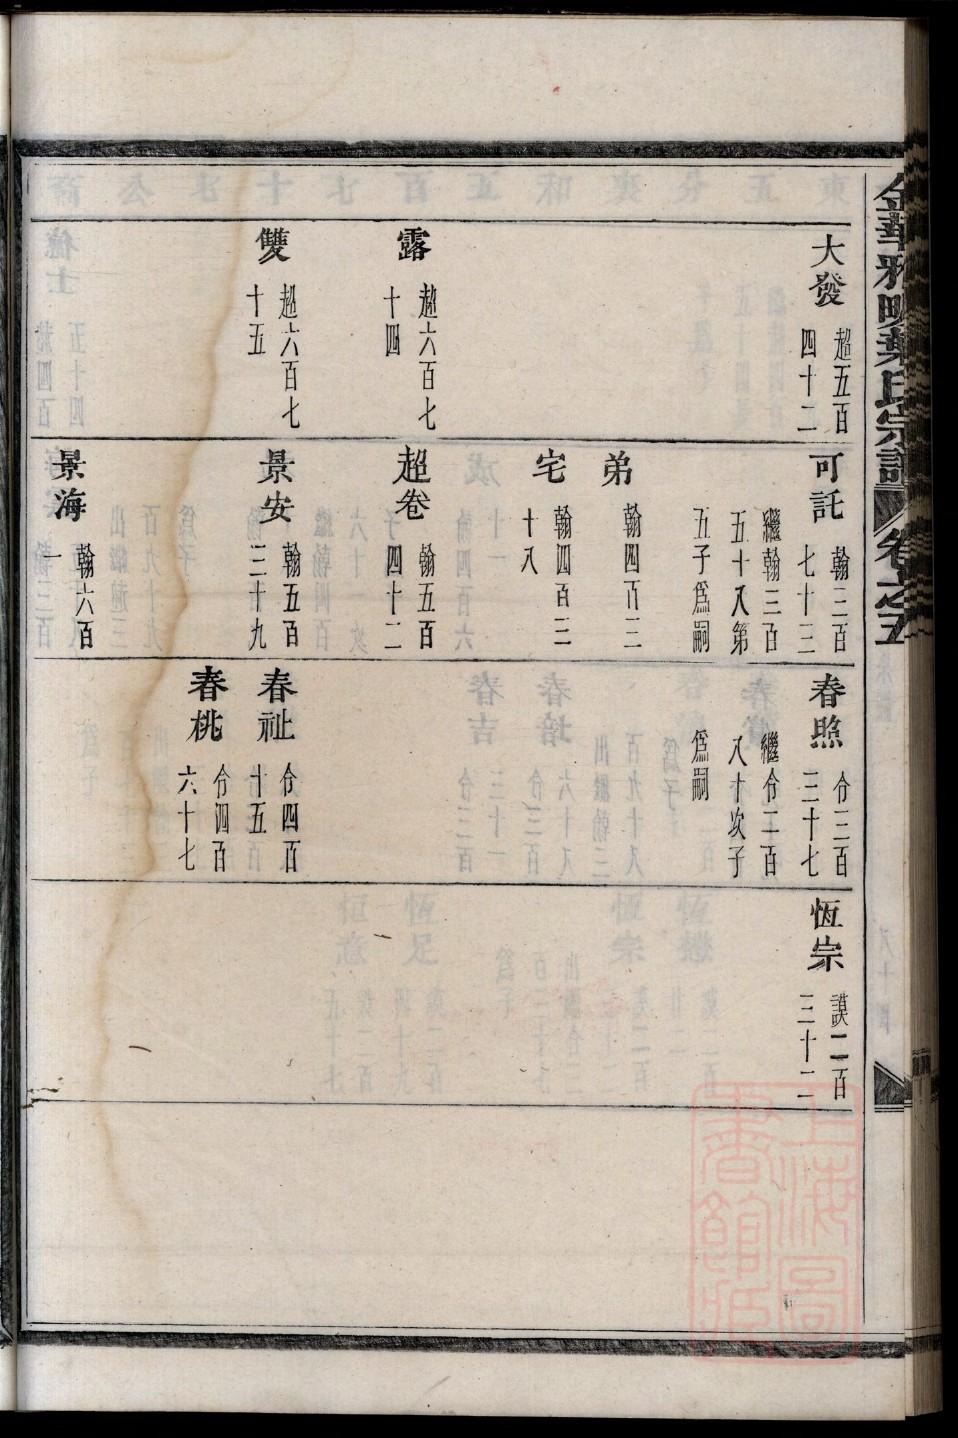 金華雅畈葉氏宗譜 卷之五
大發 超五百四十二
露 超六百七十四
雙 超六百七十五
可託 翰三百七十三
繼翰三百五十八第五子為嗣
弟 翰四百三
宅 翰四百三十八
超卷 翰五百四十二
景安 翰五百三十九
景海 翰六百一
春煦 令三百三十七
繼令二百八十次子為嗣
春祉 令四百十五
春桃 令四百六十七
恆宗 謨二百三十二
上海圖書館藏